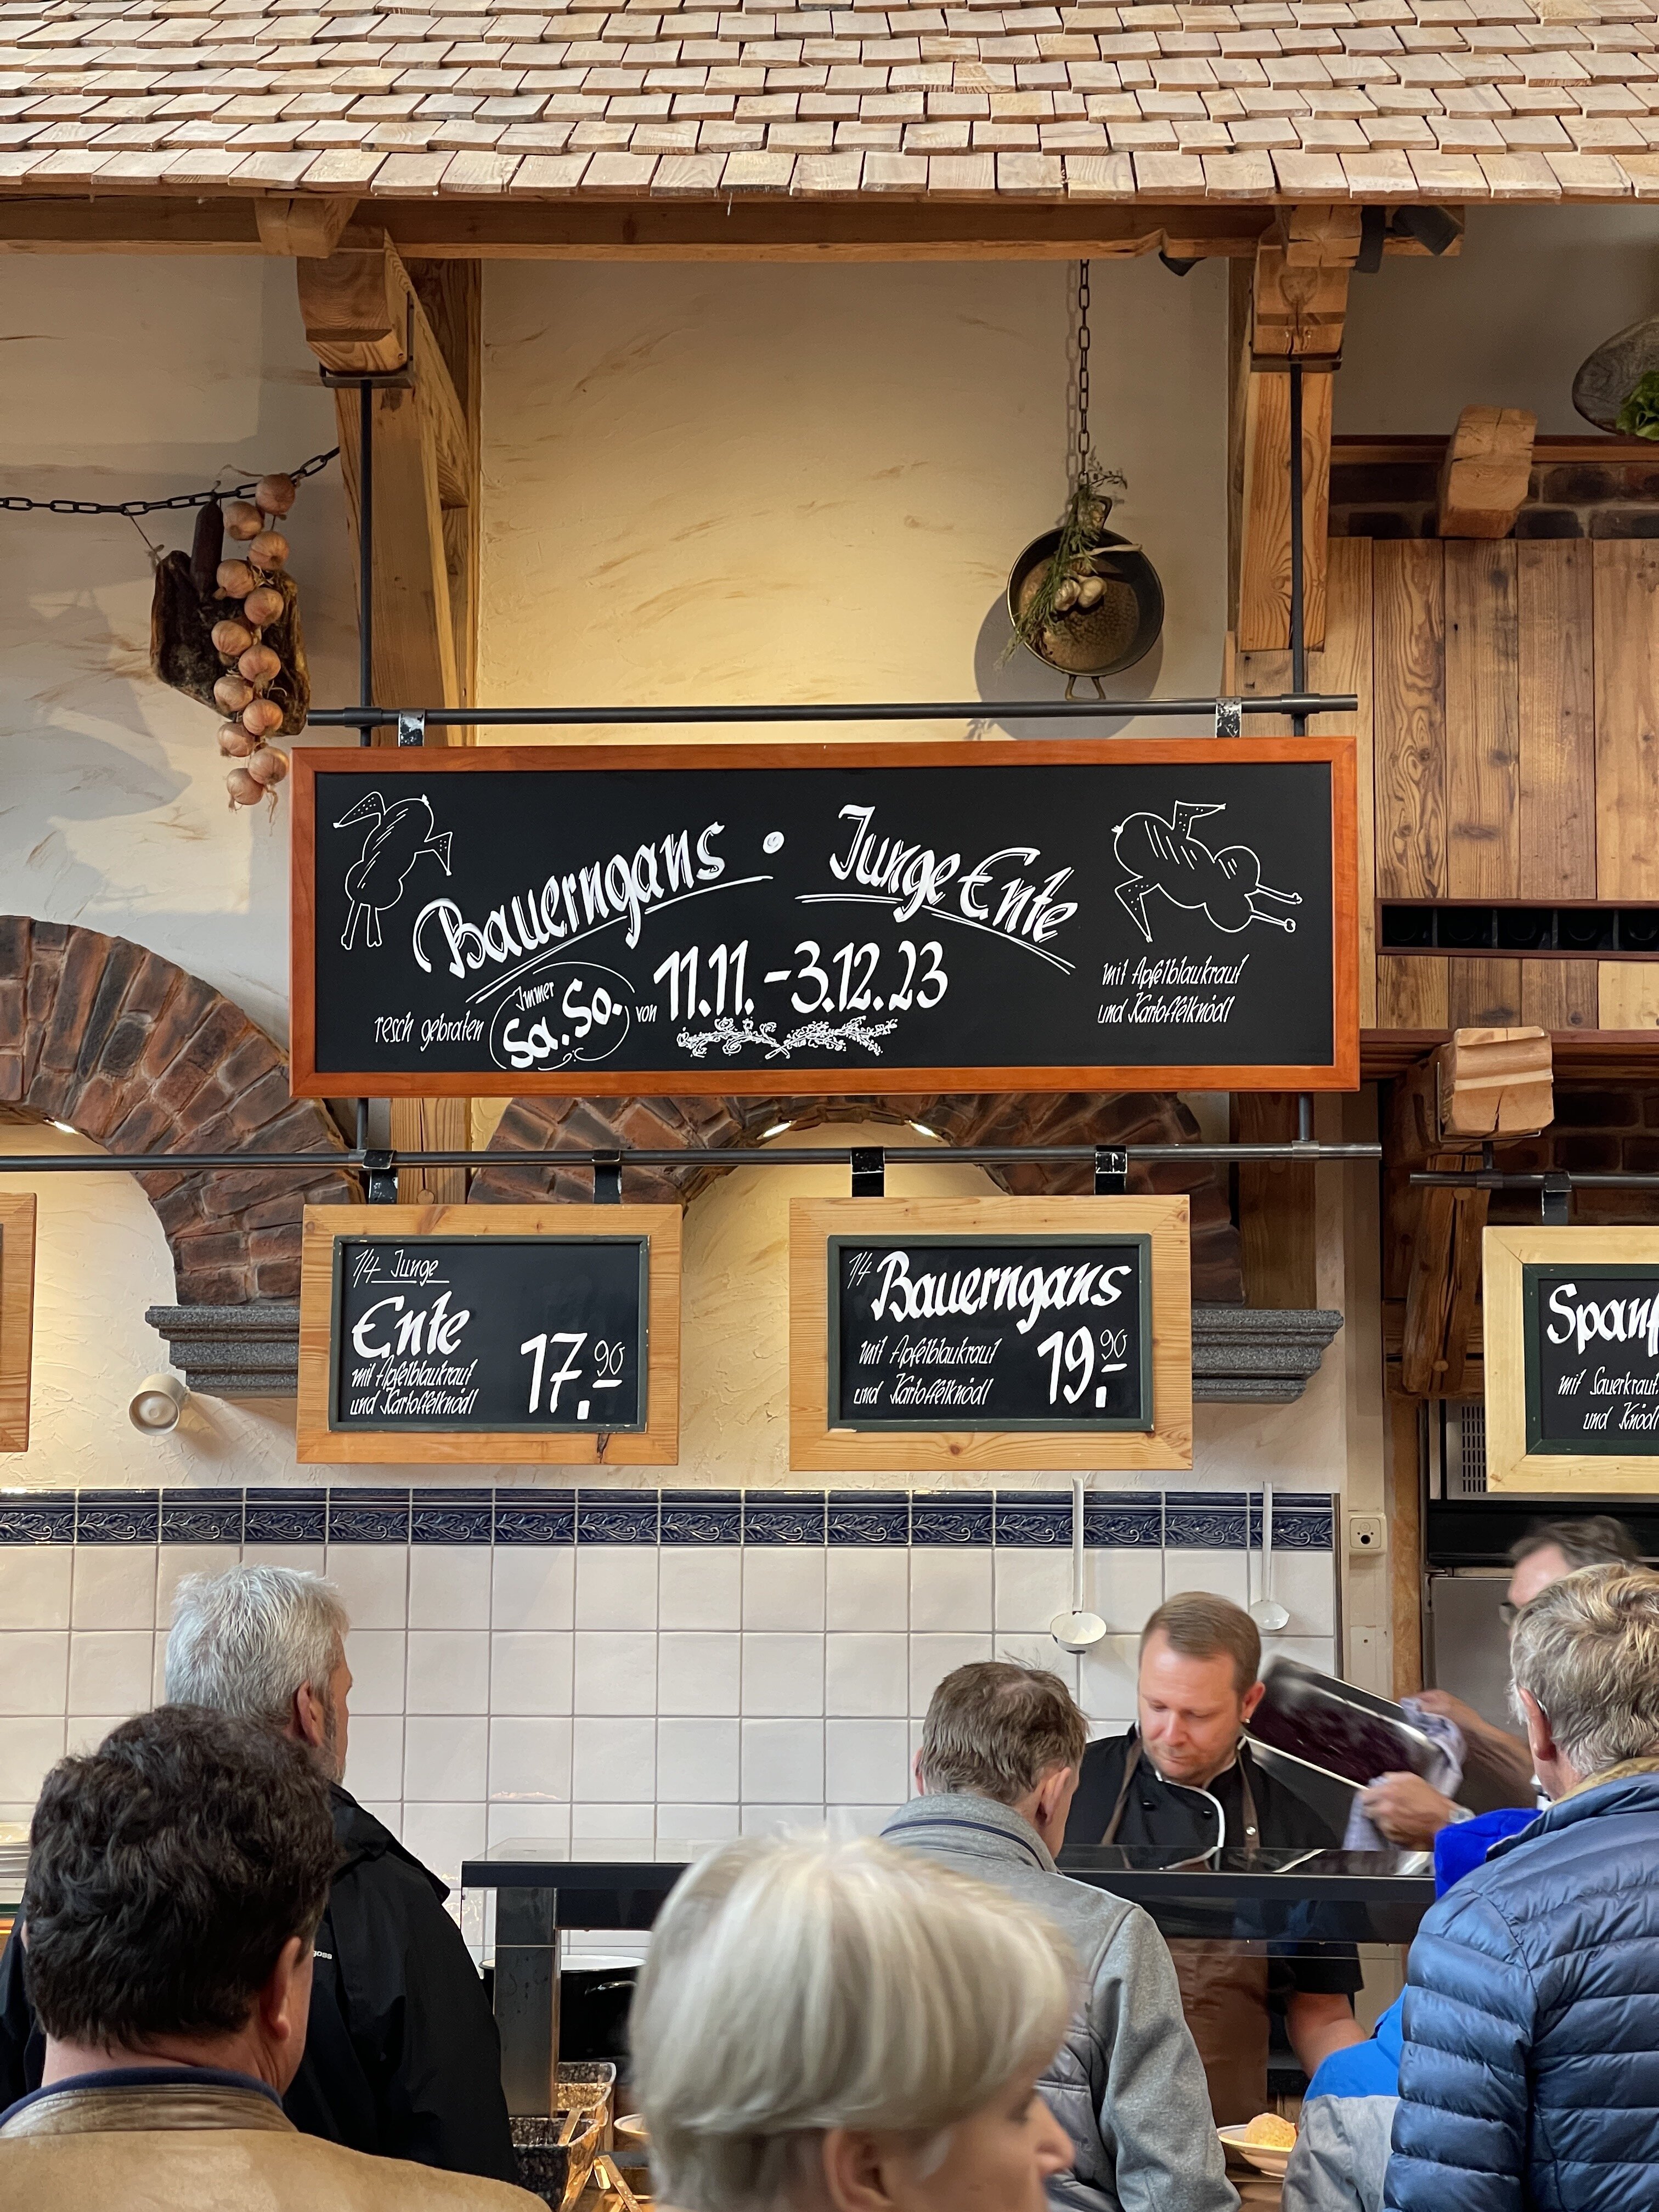 Bauerngans • Junge Ente
resch gebraten
Immer
Sa. So.
von 11.11. - 3.12.23
mit Apfelblaukraut
und Kartoffelknödl
1/4 Junge
Ente
mit Apfelblaukraut
und Kartoffelknödl
17.90
1/4 Bauerngans
mit Apfelblaukraut
und Kartoffelknödl
19.90
mit Sauerkraut
und